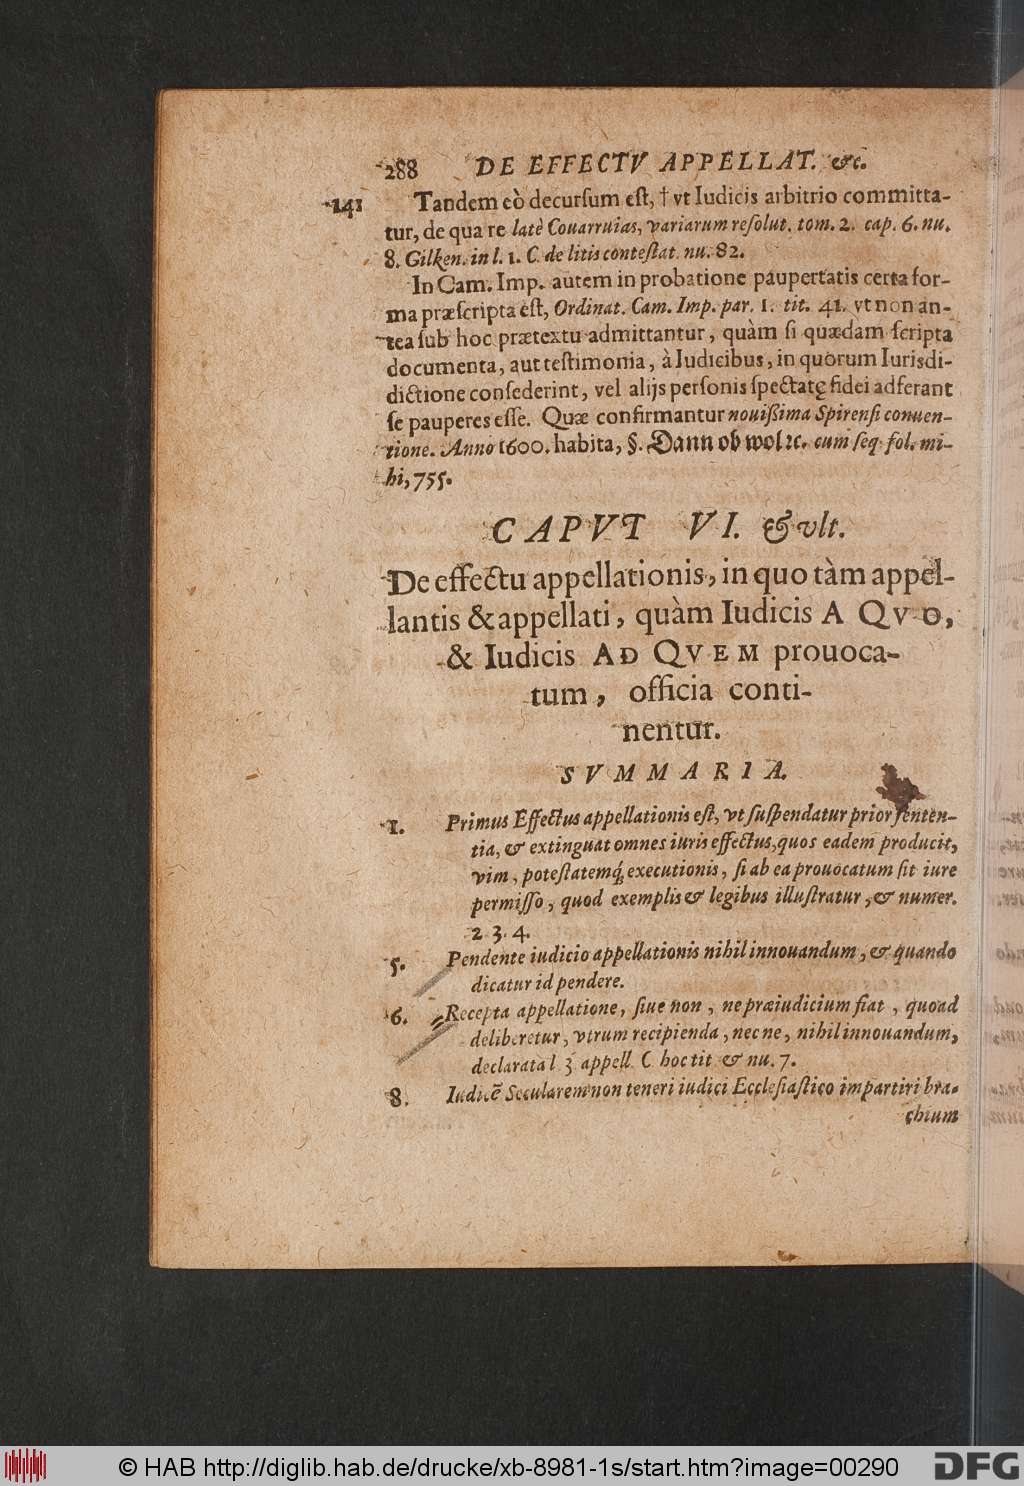 288 DE EFFECTV APPELLAT. &c.
141 Tandem eò decursum est, † vt Iudicis arbitrio committa-
tur, de qua re latè Couarruias, variarum resolut. tom. 2. cap. 6. nu.
8. Gilken. in l. 1. C. de litis contestat. nu. 82.
In Cam. Imp. autem in probatione paupertatis certa for-
ma præscripta est, Ordinat. Cam. Imp. par. 1. tit. 41. vt non an-
tea sub hoc prætextu admittantur, quàm si quædam scripta
documenta, aut testimonia, à Iudicibus, in quorum Iurisdi-
dictione consederint, vel alijs personis spectatę fidei adferant
se pauperes esse. Quæ confirmantur nouißima Spirensi conuen-
tione. Anno 1600. habita, §. Dann ob wol ꝛc. cum seq. fol. mi-
hi, 755.
CAPVT VI. & vlt.
De effectu appellationis, in quo tàm appel-
lantis & appellati, quàm Iudicis A QVO,
& Iudicis AD QVEM prouoca-
tum, officia conti-
nentur.
SVMMARIA.
1. Primus Effectus appellationis est, vt suspendatur prior senten-
tia, & extinguat omnes iuris effectus, quos eadem producit,
vim, potestatemq́; executionis, si ab ea prouocatum sit iure
permisso, quod exemplis & legibus illustratur, & numer.
2. 3. 4.
5. Pendente iudicio appellationis nihil innouandum, & quando
dicatur id pendere.
6. Recepta appellatione, siue non, ne præiudicium fiat, quoad
deliberetur, vtrum recipienda, nec ne, nihil innouandum,
declarata l. 3. appell. C. hoc tit. & nu. 7.
8. Iudicē Secularem non teneri iudici Ecclesiastico impartiri bra-
chium
© HAB http://diglib.hab.de/drucke/xb-8981-1s/start.htm?image=00290
DFG